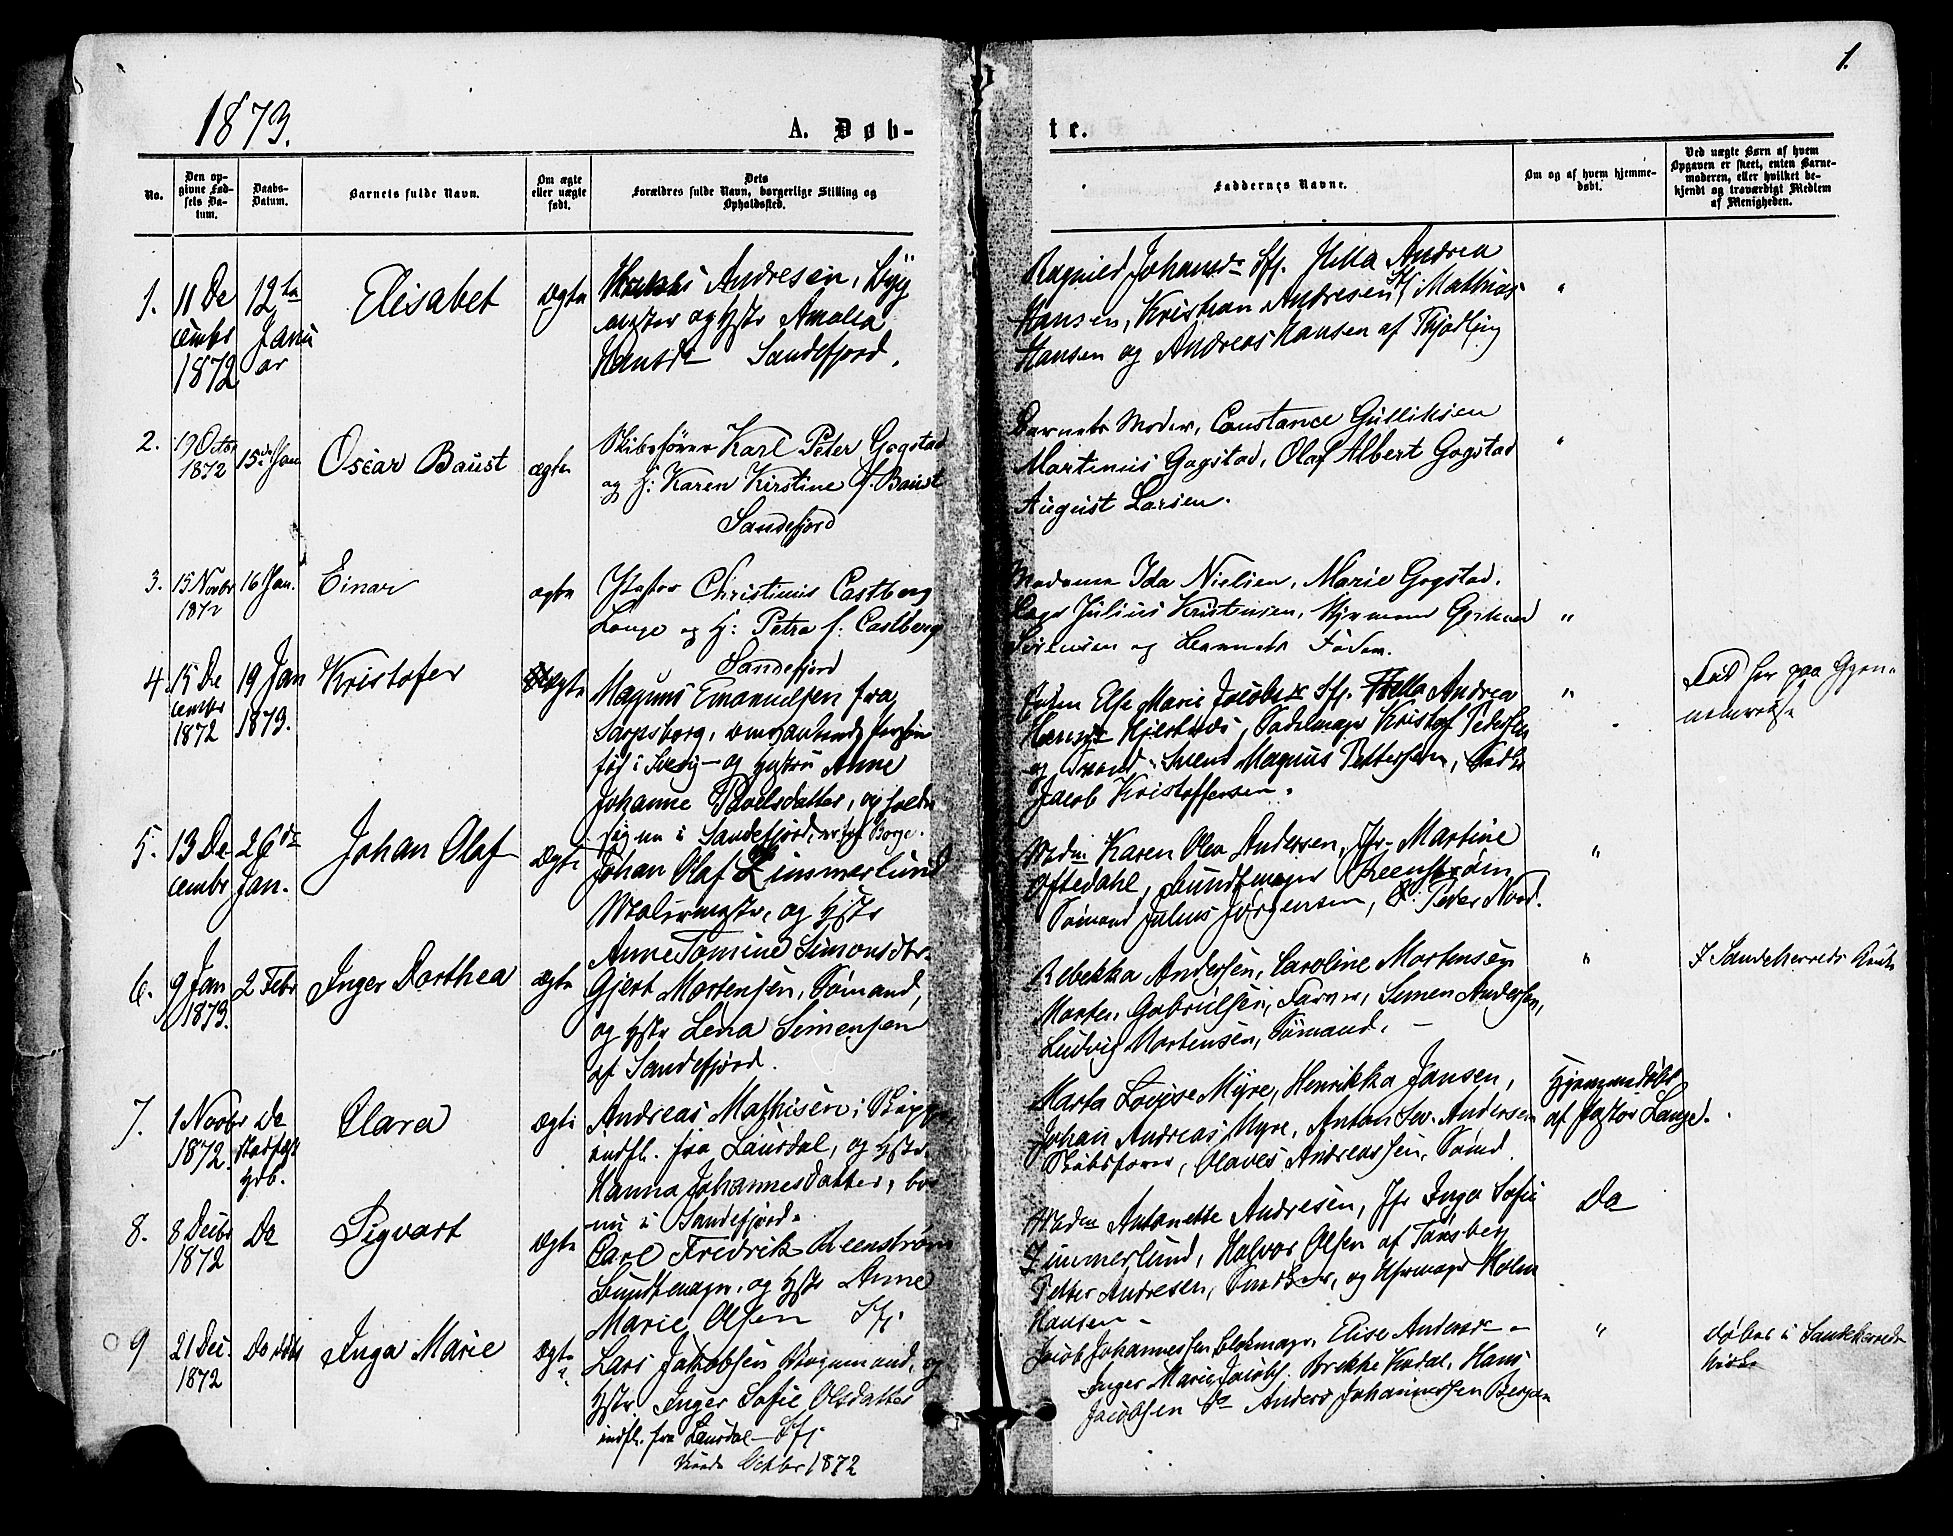 1873.
1.
A. Døb-
te.
No.
Den op-
givne Fød-
sels Da-
tum.
Daabs-
Datum.
Barnets fulde Navn.
Om ægte
eller uægte
født.
Dets
Forældres fulde Navn, borgerlige Stilling og
Opholdssted.
Faddernes Navne.
Om og af hvem hjemme-
døbt.
Ved uægte Børn af hvem
Opgaven er skeet, enten Barne-
moderen, eller hvilket be-
kjendt og troværdigt Medlem
af Menigheden.
1.
11 De
cembr
1872
12te
Janu
ar
Elisabet
ægte
Andresen, Byg
mester og Hstr Amalia
Hansdt Sandefjord.
Ragnild Johansdr Sfj. Hella Andrea
Hansen, Kristian Andresen Sfj Mathias
Hansen og Andreas Hansen af Thjødling
"
2.
19 Octbr
1872
15de Jan
Oscar Baust
ægte
Skibsfører Karl Peter Gogstad
og H: Karen Kirstine f. Baust
Sandefjord
Barnets Moder, Constance Gulliksen
Martinius Gogstad, Olaf Albert Gogstad
August Larsen.
"
3.
15 Novbr
1872
16 Jan.
Einar
ægte
Pastor Christinus Castberg
Lange og H: Petra f: Castberg
Sandefjord
Madame Ida Nielsen, Marie Gogstad.
Julius Kristensen,
Sørensen og Barnets Fader.
"
4.
15 De
cembr
1872
19 Jan
1873.
Kristofer
ægte
Magnus Emanuelsen fra
Sarpsborg,
fød i Sverig - og Hustru Anne
Johanne Poulsdatter, opholder
sig nu i Sandefjord,
Else Marie Jacobsdr Sfj. Hella Andrea
Hansdr Hjertnæs, Sadelmager Kristof Pedersen
Svend Magnus Pettersen,
Jacob Kristoffersen.
"
Fød her paa Gjen-
nemreise
5.
13 De
cembr
26de
Jan.
Johan Olaf
ægte
Johan Olaf Zimmerlund
Malermester, og Hstr
Anne Tomine Simonsdtr.
Madm Karen Olea Andersen, Jfr. Martine
Oftedahl, Bundtmager Reenstrøm,
Sømand Julius Jørgensen, & Peder Nord.
"
6.
9 Jan
1873.
2 Febr
Inger Dorthea
ægte
Gjert Mortensen, Sømand,
og Hstr Lena Simensen
af Sandefjord.
Rebekka Andersen, Caroline Mortensen
Morten Gabrielsen, Farver, Simen Andersen,
Ludvig Mortensen, Sømand. -
"
I Sandeherreds Kirke
7.
1 Novbr
1872.
Do
Hdb.
Clara
ægte
Andreas Mathisen, Skipper
indfl. fra Laurdal, og Hstr
Hanna Johannesdatter, bor
nu i Sandefjord.
Marta Lovise Myre, Henrikka Jansen,
Johan Andreas Myre, Anton Sev. Andersen
Skibsfører, Olaves Andreassen, Sømd.
Hjemmedøbt
af Pastor Lange.
8.
8 Decbr
1872
Do
Sigvart
ægte
Carl Fredrik Reenstrøm
Bundtmager, og Hstr Anne
Marie Olsen Sfj.
Madm Antonette Andresen, Jfr Inga Sofie
Zimmerlund, Halvor Olsen af Tønsberg
Petter Andresen, Snedker, og Uhrmager Holm
Hansen -
Do
9
21 Dec.
1872
Do
Inga Marie
ægte
Lars Jakobsen Brugsmand, og
Hstr Inger Sofie Olsdatter
indfl. fra Laurdal - Sfj.
Octbr 1872
Jacob Johannessen Blokmager, Elise Anders
Inger Marie Jacobs. Brekke Kodal, Hans
Jacobsen Do Anders Johannessen Bergan
"
døbt i Sandeherreds
Kirke